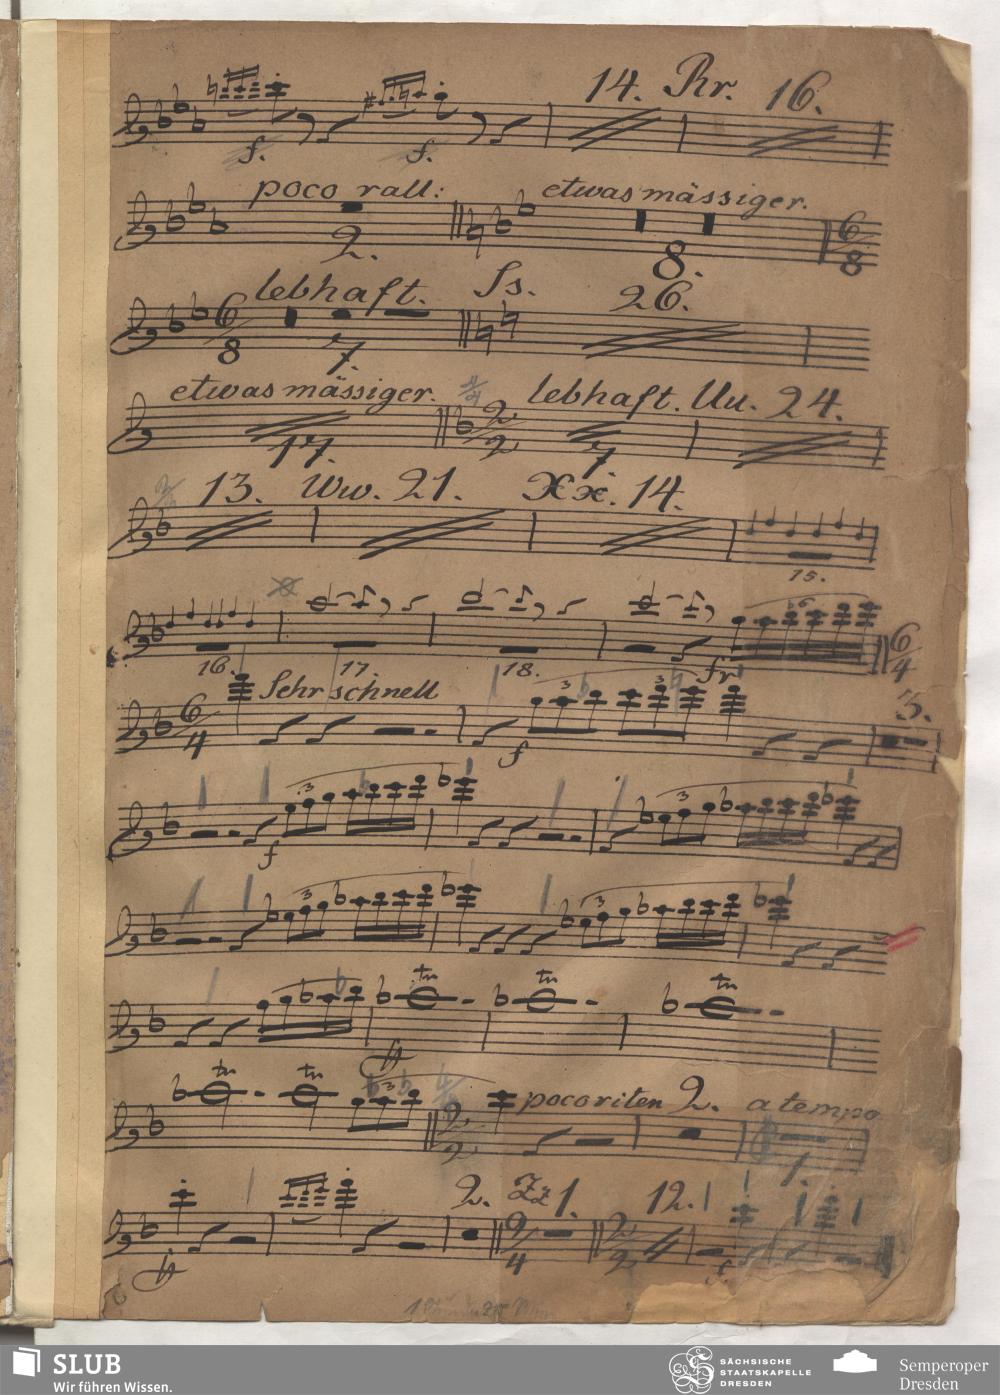 14. Rr. 16.
f. f.
poco rall: etwas mässiger.
2. 8. 6/8
lebhaft. Ss. 26.
6/8 7.
etwas mässiger. lebhaft. Uu. 24.
17. 2/2 7.
13. Ww. 21. Xx. 14.
15.
16. 17. 18. 6/4
6/4 Sehr schnell 3 3 3.
f
3 3
f
3 3
tr tr tr
tr tr 3
2/2 poco riten 2. a tempo
1.
2. Zz 1. 12.
9/4 2/2
f.
SLUB
Wir führen Wissen.
SÄCHSISCHE
STAATSKAPELLE
DRESDEN
Semperoper
Dresden